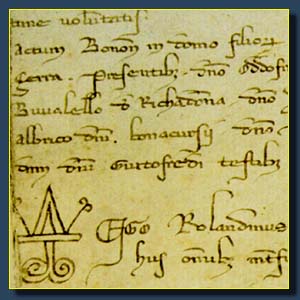 voluntatis
Actum Bonon in domo filior
Presentibz dno Oddofr
Buvalello d Richadona dno
albrico dni bonacursii dno
dni Guttofredi testibz
Ego Rolandinus
hus omibz